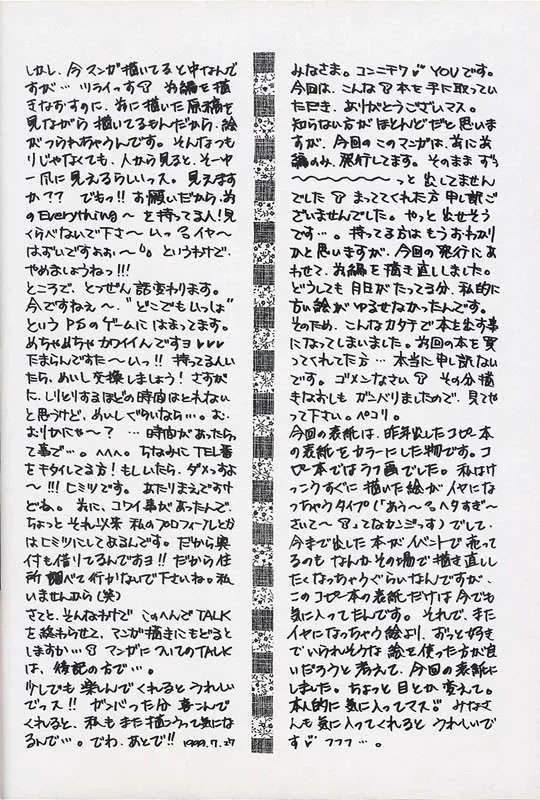 みなさま。コンニチワ♡ YOUです。
今回は、こんな本を手に取ってい
ただき、ありがとうございマス。
知らない方がほとんどだと思いま
すが、今回のこのマンガは、前に前
編のみ、発行してます。そのまま ずっ
〜〜〜〜〜〜〜っと 出してません
でした まってくれてた方 申し訳ご
ざいませんでした。やっと 出せそう
です…。持ってる方は もう おわかり
かと思いますが、今回の発行にあ
わせて、前編を描き直ししました。
どうしても 月日がたってる分、私的に
古い絵が ゆるせなかったんです。
そのため、こんなカタチで本を出す事
になってしまいました。前回の本を買
ってくれてた方… 本当に申し訳ない
です。ゴメンなさい その分描
きなおしも ガンバりましたので、見てや
って下さい。ペコリ。
今回の表紙は、昨年出したコピー本
の表紙をカラーにした物です。コ
ピー本ではラフ画でした。私はけ
っこうすぐに描いた絵がイヤにな
っちゃうタイプ(「あう〜 ヘタすぎ〜
さいて〜」ってなカンジっす)でして、
今まで出した本がイベントで売って
るのも なんか その場で描き直しし
たくなっちゃうぐらいなんですが、
このコピー本の表紙だけは今でも
気に入ってたんです。それで、また
イヤになっちゃう絵より、ずっと好き
でいられそうな 絵を使った方が良
いだろうと考えて、今回の表紙に
しました。ちょっと 目とか 変えて。
本人的に気に入ってマス みなさ
んも気に入ってくれると うれしいで
す♡ フフフ…。
しかし、今マンガ描いてると中なんで
すが… ツライっす 前編を描
きなおすのに、前に描いた原稿を
見ながら 描いてるもんだから、絵
がつられちゃうんです。そんなつも
りじゃなくても、人から見ると、その中
一爪に見えるらしいっス。見えます
か?? でもっ!! お願いだから、前
のEverything〜 を持ってる人!見
くらべないで下さ〜いっ イヤ〜
はずいですよぉぉ〜 というわけで、
やめましょうねっ!!!
ところで、とつぜん話変わります。
今ですねぇ〜、“どこでもいっしょ”
という PSのゲームに はまってます。
めちゃめちゃ カワイイんですョ♥♥♥
たまらんですた〜いっ!! 持ってる人い
たら、めいし交換しましょう! さすが
に、しりとりするほどの時間はとれない
と思うけど、めいしぐらいなら…。お、
おりかにゃ〜? …時間があったら
って事で…。^^^。ちなみに TEL番
をキタイしてる方! もしいたら、ダメっすよ
〜!!! ヒミツです。あたりまえですけ
どね。前に、コワイ事があったんで、
ちょっと それ以来 私のプロフィールとか
はヒミツにしてあるんです。だから奥
付も借りてるんですョ!! だから住
所 調べて行かないで下さいねっ私
いませんから(笑)
さてと、そんなわけで このへんでTALK
を終わらせて、マンガ描きにもどると
しますか… マンガについてのTALK
は、後記の方で…。
少しでも 楽しんでくれると うれしい
でっス!! ガンバった分 喜こんで
くれると、私も また 描こうって気にな
るんで…。でわ、あとで!! 1999.7.27